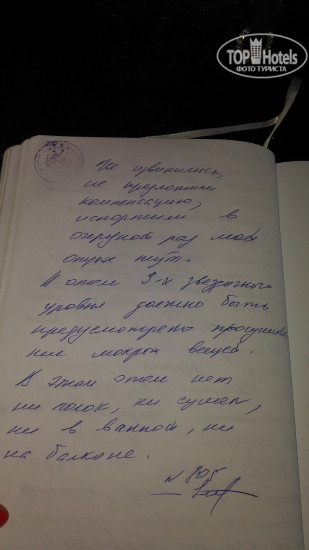 TOPHotels
ФОТО ТУРИСТА
Не извинились,
не предложили
компенсацию,
испортили в
очередной раз мой
отдых тут.
В отеле 3-х звездочного
уровня должно быть
предусмотрено просушива
ние мокрых вещей.
В этом отеле нет
ни полок, ни сушал,
ни в ванной, ни
на балконе.
N 805